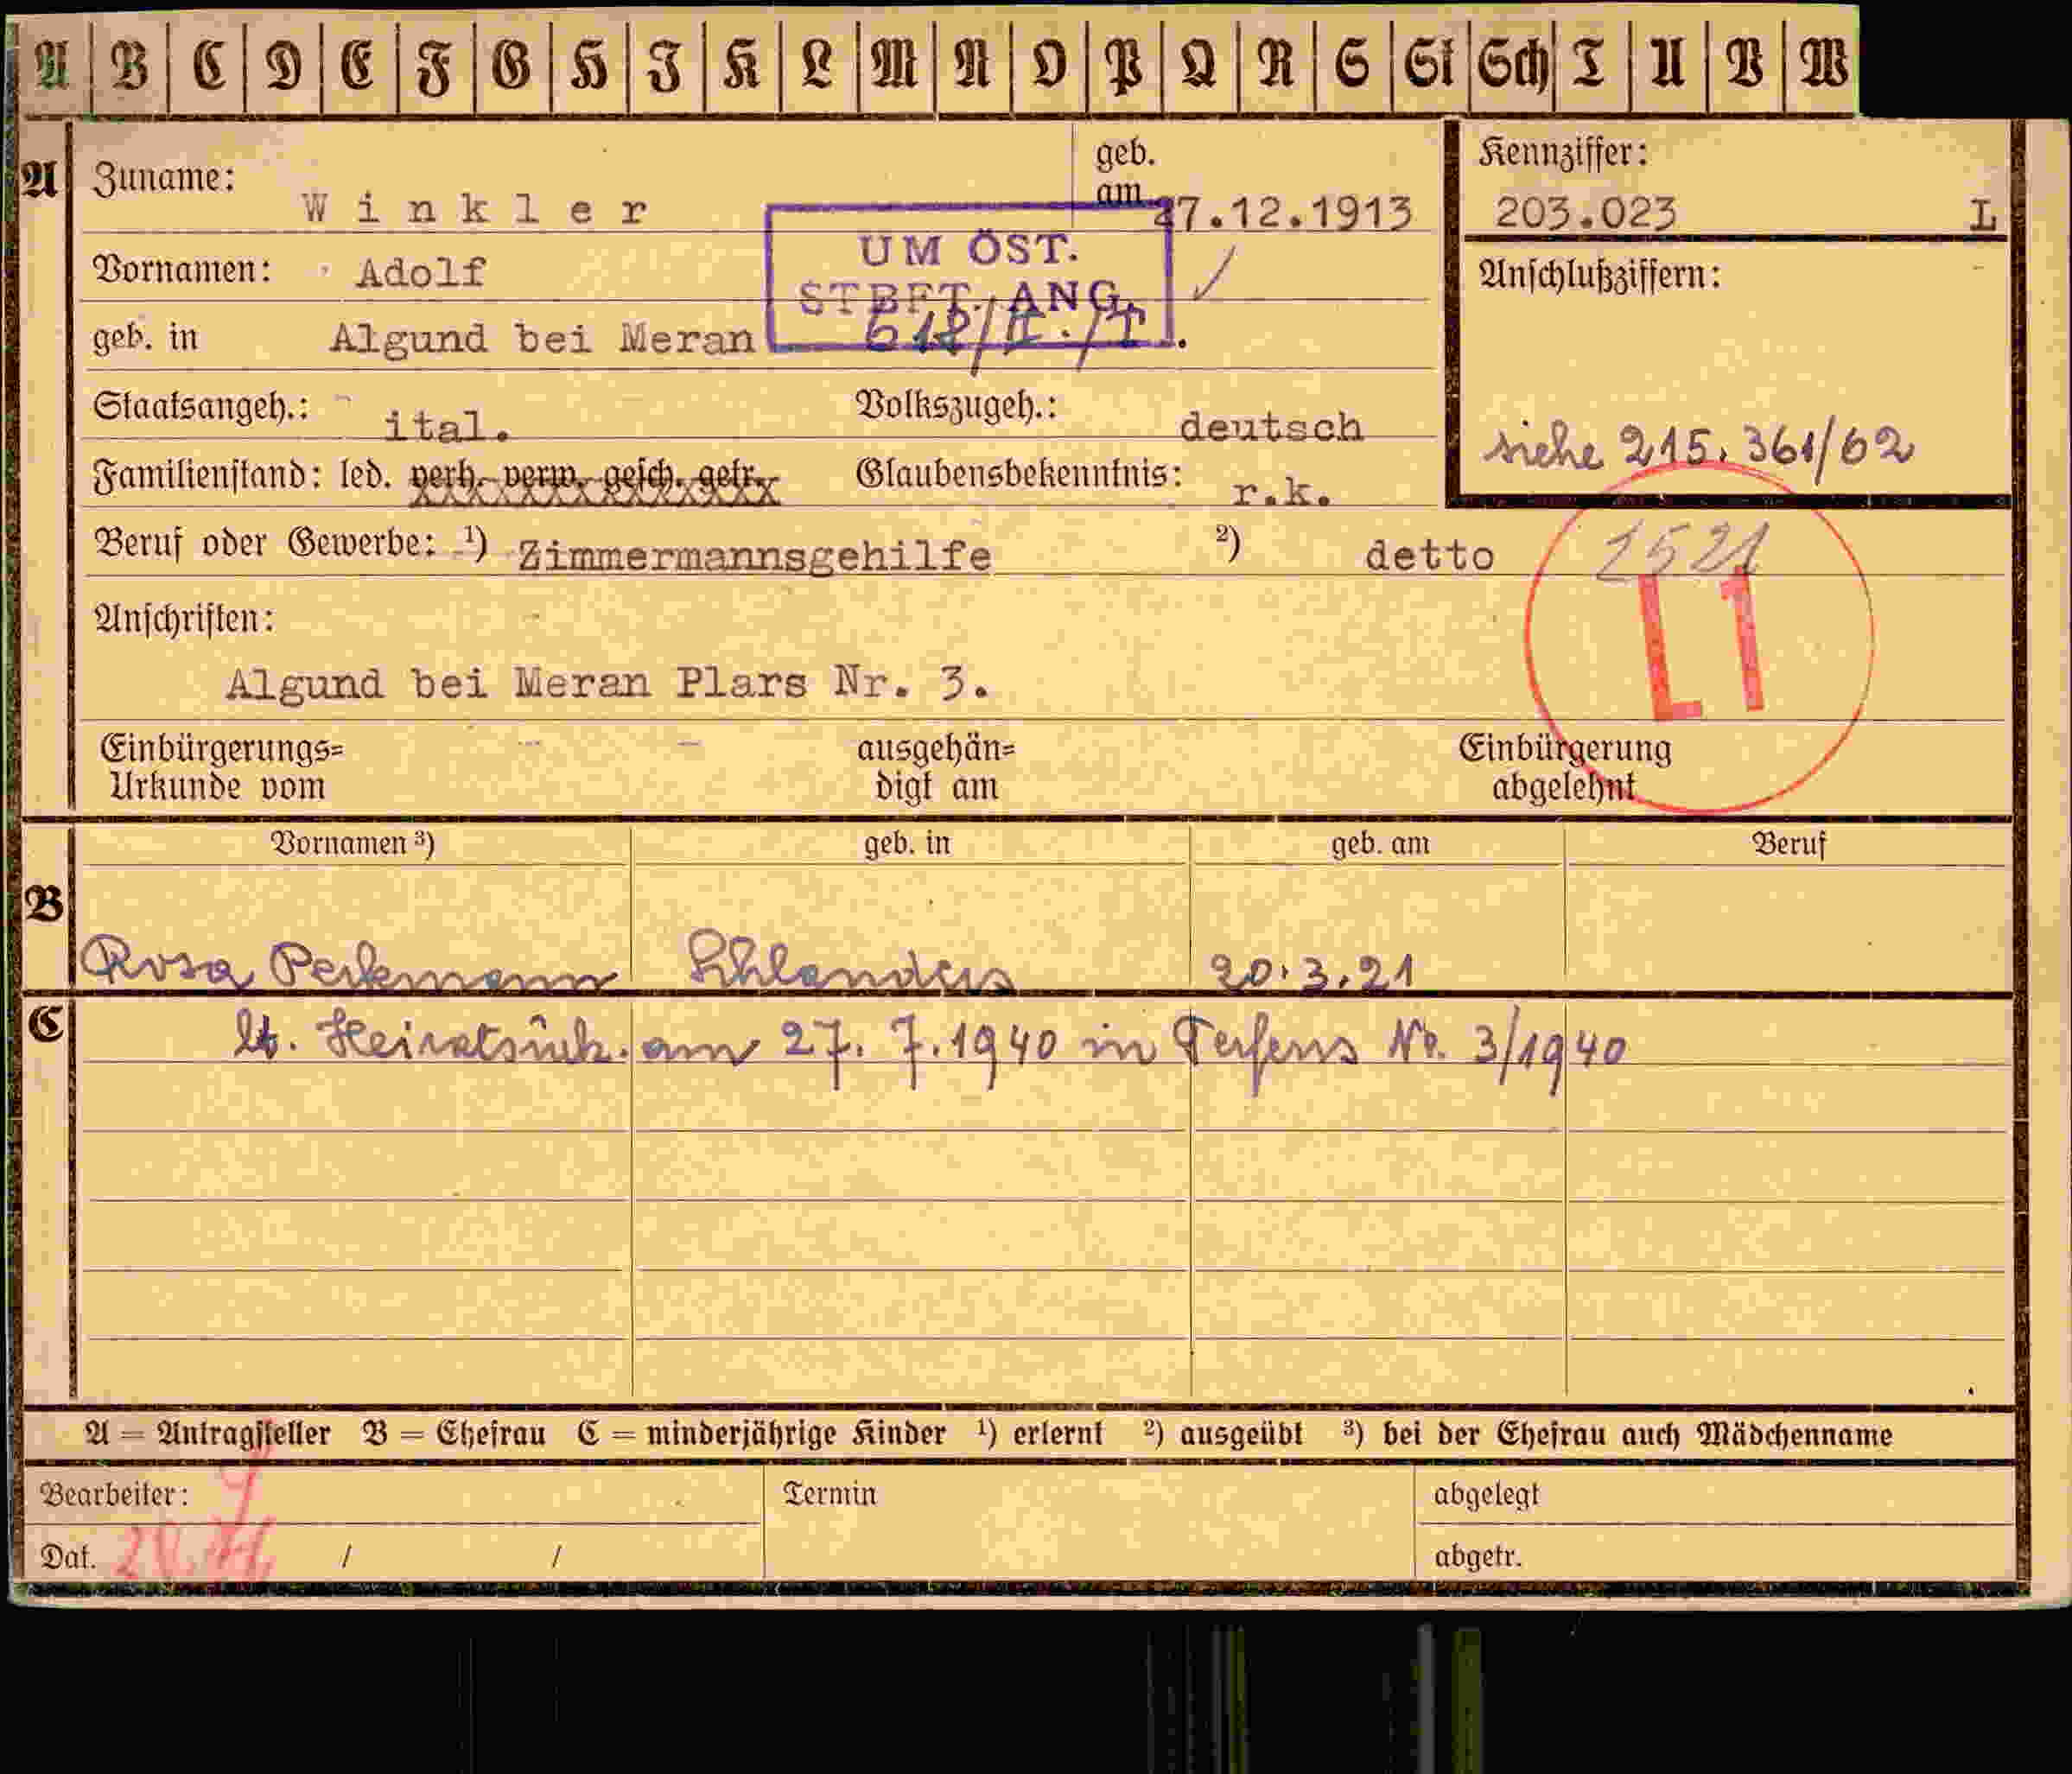 A B C D E F G H I K L M N O P Q R S St Sch T U V W
A Zuname: Winkler geb. am 27.12.1913
Kennziffer: 203.023 L
UM ÖST.
STBFT. ANG.
Vornamen: Adolf
Anschlußziffern:
geb. in Algund bei Meran
Staatsangeh.: ital. Volkszugeh.: deutsch
siehe 215.361/62
Familienstand: led. verh. verw. gesch. getr. Glaubensbekenntnis: r.k.
Beruf oder Gewerbe: ¹) Zimmermannsgehilfe ²) detto
1521
L1
Anschriften:
Algund bei Meran Plars Nr. 3.
Einbürgerungs= ausgehän= Einbürgerung
Urkunde vom digt am abgelehnt
Vornamen ³) geb. in geb. am Beruf
B Rosa Perkmann Schlanders 20.3.21
C lt. Heiratsurk. am 27. 7. 1940 in Terfens Nr. 3/1940
A = Antragsteller B = Ehefrau C = minderjährige Kinder ¹) erlernt ²) ausgeübt ³) bei der Ehefrau auch Mädchenname
Bearbeiter: Termin abgelegt
Dat. / / abgetr.